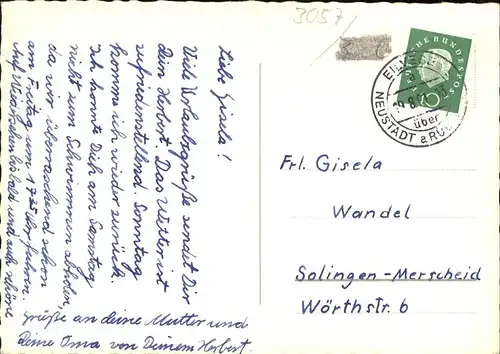 3057
Liebe Gisela!
Viele Urlaubsgrüße sendet Dir
Dein Herbert. Das Wetter ist
zufriedenstellend. Sonntag
komme ich wieder zurück.
Ich konnte Dich am Samstag
nicht vom Schwimmen abholen,
da wir überraschend schon
am Freitag um 17 25 Uhr fuhren.
Auf Wiedersehen bis bald und noch schöne
Grüße an deine Mutter und
Deine Oma von Deinem Herbert.
DEUTSCHE BUNDESPOST
10
EILVESE
über
NEUSTADT a RÜB
Frl. Gisela
Wandel
Solingen-Merscheid
Wörthstr. 6